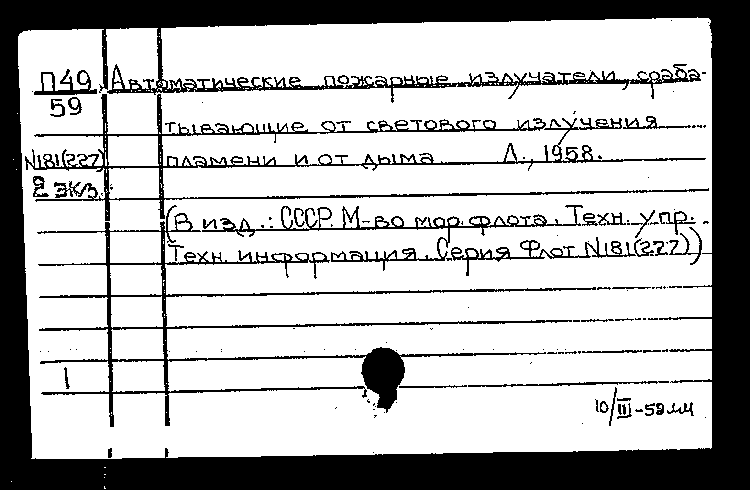 П49 Автоматические пожарные излучатели, сраба-
59
тывающие от светового излучения
N181(227) пламени и от дыма Л., 1958.
2 экз.
(В изд.: СССР. М-во мор. флота. Техн. упр.
Техн. информация. Серия Флот N181(227))
1
10/III-59